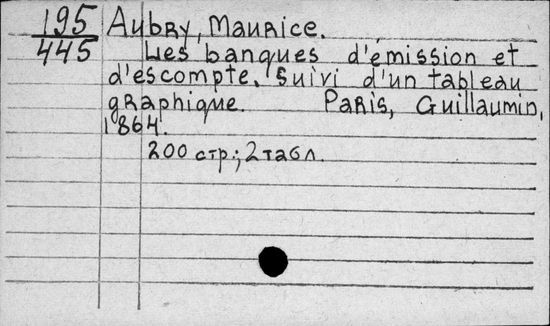 195 Aubry, Maurice.
445 Les banques d'émission et
d'escompte. Suivi d'un tableau
graphique. Paris, Guillaumin,
1864.
200 стр.; 2 табл.